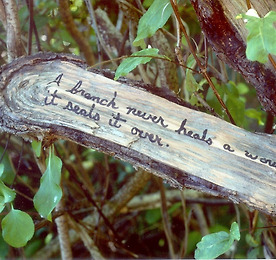 A branch never heals a wou
it seals it over.